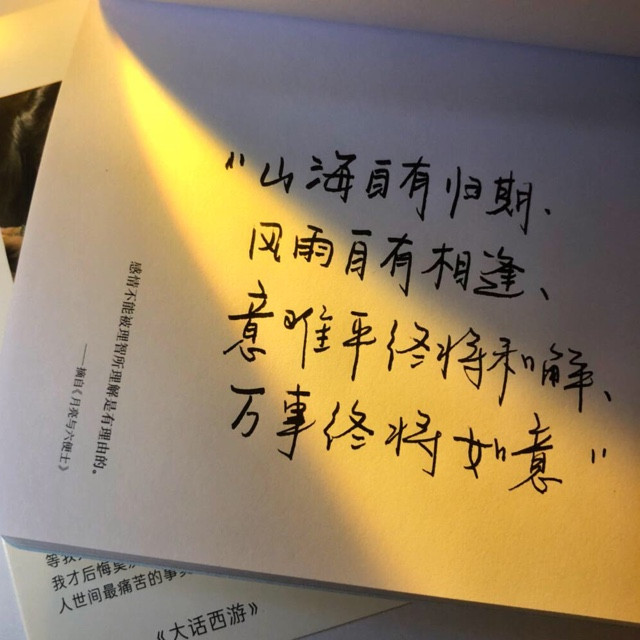 “山海自有归期、
风雨自有相逢、
意难平终将和解、
万事终将如意”
感情不能被理智所理解是有理由的。
——摘自《月亮与六便士》
等我
我才后悔莫
人世间最痛苦的事
《大话西游》